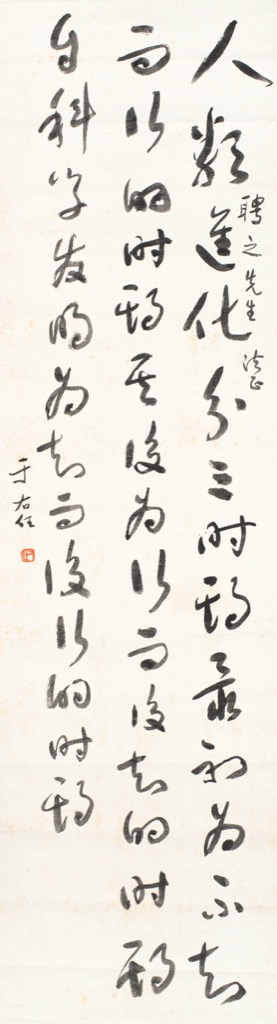 人類進化分三時期最初為不知
而行的時期其後為行而後知的時期
自科學發明為知而後行的時期
聘之先生 法正
于右任